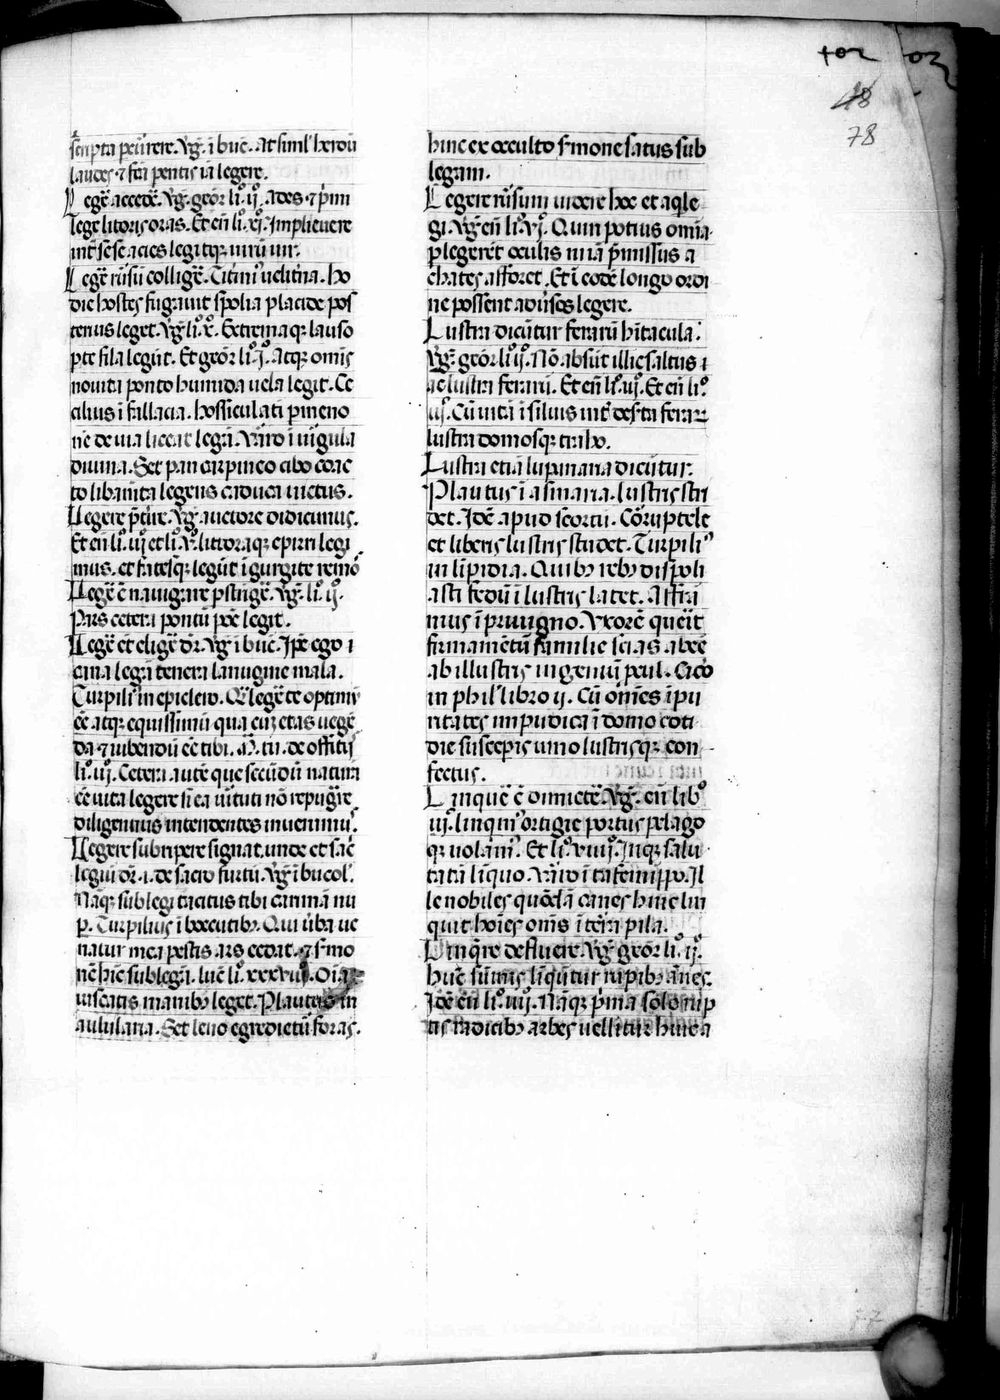 ton
on
48
78
scripta pcurrere. Vg̅. i buc̅. At simul heroū
laudes ⁊ fc̅a pentis ia legere.
Legē accedē. Vg̅. georͣ li. ij. Ades ⁊ p̅mi
lege litoris oras. Et en̅ li. xij. Implicuere
int̅ se se acies legitqꝫ uirū uir.
Legē rūsū colligē. Titiniꝰ uelitina. ho
die hostes fugauit spolia placide pos
tenus leget. Vg̅ li. x. Extremaqꝫ lauso
pte fila legūt. Et georͣ li. i. Atqꝫ omīs
nauita ponto humida uela legit. Ce
cilius i fallacia. hossiculati p̅meno
ne de uia liceat legā. Varo i uirgula
diuina. Set pan
to libamta legens caduca uictus.
Legere p̅t̅ire. Vg̅. auctore didicimus.
Et en̅ li. iij et li. v. littoraqꝫ epiri legi
mus. et fatetqꝫ legūt i gurgite remo
Legē ē nauigare pstrigē. Vg̅. li. ij.
Pars cetera pontū poē legit.
Legē ēt eligē dr̅. Vg̅ i buc̅. Ipē ego i
cana legā tenera lanugine mala.
Turpiliꝰ in epiclero. Q̅ legē te optimū
ēē atqꝫ equissimū qua etas uegē
da ⁊ iubendū ēē tibi. M. tu. de offitijs
li. iij. Cetera aute que secūdū naturā
ēē uita legere si ea uirtuti nō repugn̅re
diligentius intendentes inuenimꝰ.
Legere subripere signat. unde et sac̅
legiū dr̅ .i. de sacro furtū. Vg̅ i bucol̅.
Naqꝫ sublegi tacitus tibi carminā nu
p̅. Turpilius i boetutibꝫ. Qui urba ue
natur mea pestis ars cedat ⁊ s̅mo
nē hic sublegā. luc̅ li. xxxviij.
uiscatis manibꝫ leget. Plautus in
aulularia. Set leno egredietū foras.
hinc ex occulto s̅mone satus sub
legam.
Legere rūsum uidere hoc et aq̅le
gi. Vg̅ en̅ li. vj. Quin potius omīa
plegerēt oculis ni iā p̅missus a
chates afforet. Et i eodē longo ordi
ne possent aduersos legere.
Lustra dicūtur ferarū hītacula.
Vg̅. georͣ li. ij. Nō absūt illic saltus i
ac lustra ferarū. Et en̅ li. iij. Et en̅ li.
iij. Cū uita i siluis int̅ deserta ferarꝝ
lustra domosqꝫ traho.
Lustra etiā lupinaria dicūtur.
Plautus i asinaria. lustris stri
det. Idē apud scortū. Corruptele
et liberis lustris studet. Turpiliꝰ
in lipidia. Quibꝫ rebꝫ dispoli
asti fedū i lustris latet. Affrā
nius i priuigno. Vxorē queīt
firmamētū familie scias abeē
ab illustris ingeniū pcul. Cico
in phil̅ libro ij. Cū omēs ipu
ritates impudica i domo coti
die susceperis uino lustrisqꝫ con
fectus.
Linquē ē dimictē. Vg̅. en̅ lib
iij. linqmꝰ ortigie portus pelago
qꝫ uolamꝰ. Et li. viiij. Inqꝫ salu
tatā linquo. Varo i tafemippo. Il
le nobiles quōdā canes hinc lin
quit hoīes omīs i tēra pila.
Linq̅re defluere. Vg̅ georͣ li. ij.
huc sūmis liqūtur rupibꝫ amnes.
Idē en̅ li. iiij. Naqꝫ p̅ma solo rup
tis radicibꝫ arbos uellitur hinc a
77